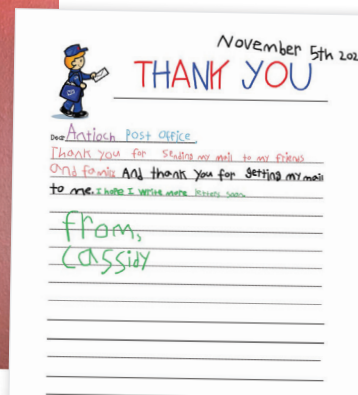 November 5th 202
THANK YOU
Dear Antioch Post Office,
Thank you for sending my mail to my friens
and famia And thank you for getting my mail
to me. I hope I write more letters soon
From,
CASSIDY